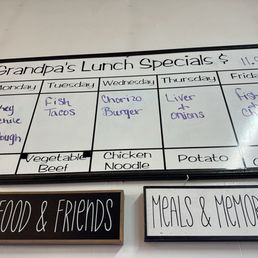 Grandpa's Lunch Specials $ 11.
Monday Tuesday Wednesday Thursday Friday
Fish Tacos
Chorizo Burger
Liver + Onions
Vegetable Beef
Chicken Noodle
Potato
FOOD & FRIENDS
MEALS & MEMOR